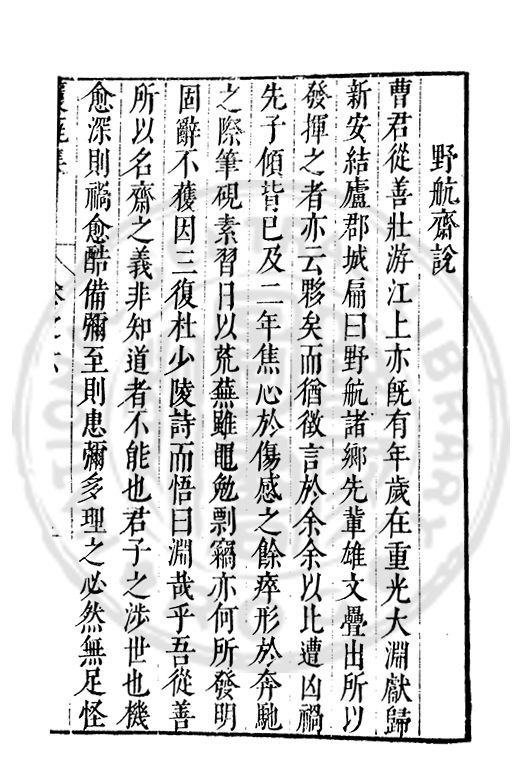 野航齋說
曹君從善壯游江上亦旣有年歲在重光大淵獻歸
新安結廬郡城扁曰野航諸鄉先輩雄文疊出所以
發揮之者亦云夥矣而猶徵言於余余以比遭凶禍
先子傾背已及二年焦心於傷感之餘瘁形於奔馳
之際筆硯素習日以荒蕪雖黽勉剽竊亦何所發明
固辭不獲因三復杜少陵詩而悟曰淵哉乎吾從善
所以名齋之義非知道者不能也君子之涉世也機
愈深則禍愈酷備彌至則患彌多理之必然無足怪